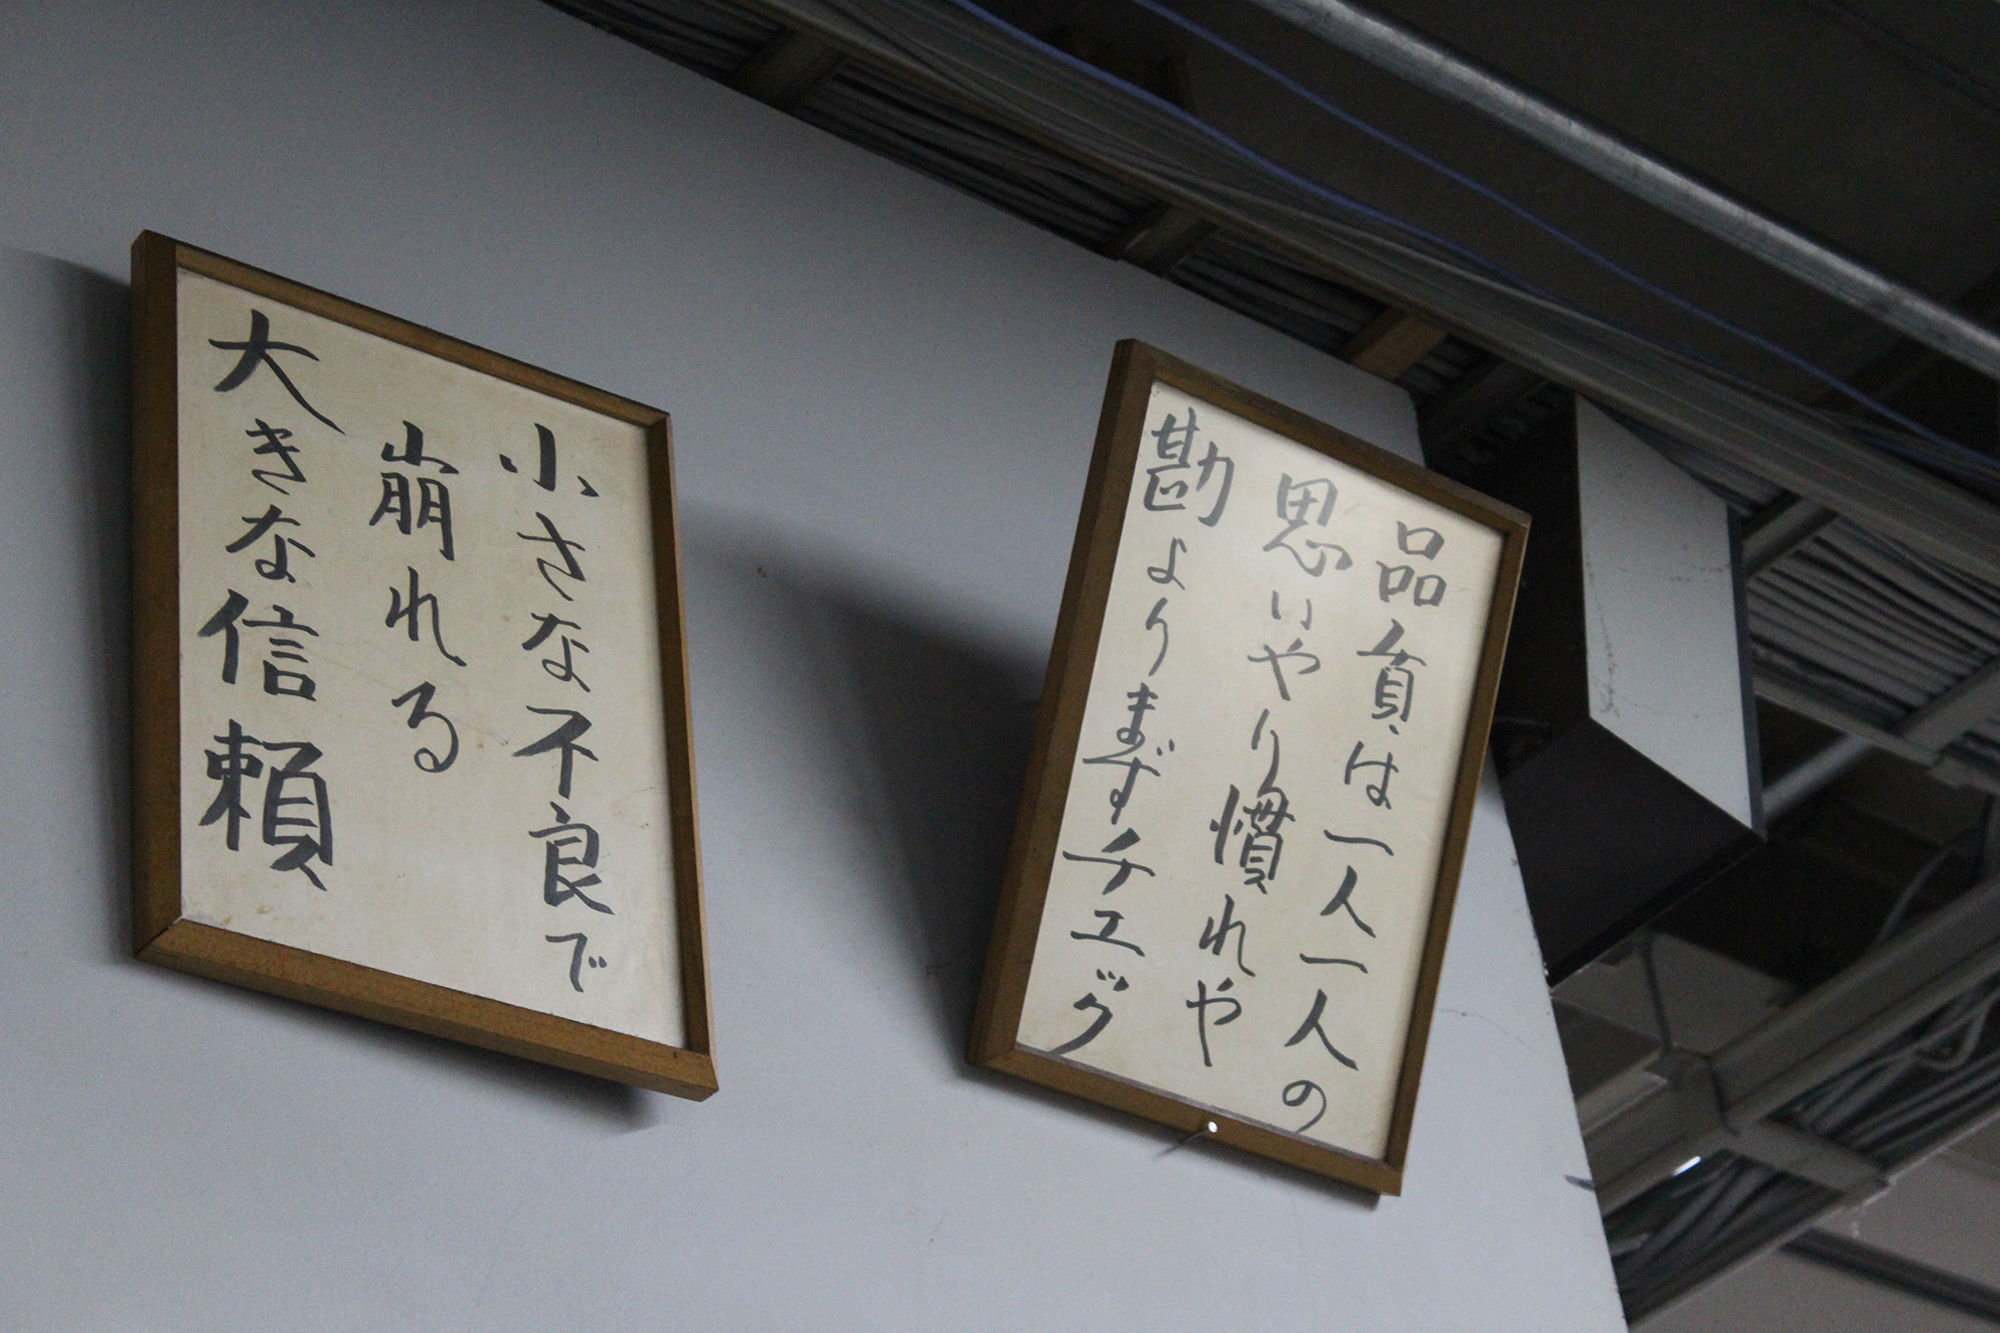 品質は一人一人の
思いやり慣れや
勘よりまずチェック
小さな不良で
崩れる
大きな信頼